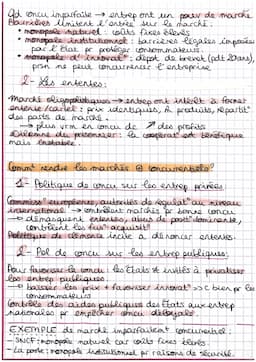 Qd concu imparfaite → entrep ont un pouv de marché
Barrières limitent l'entrée sur le marché :
• monopole naturel : coûts fixes élevés
• monopole institutionnel : barrières légales imposées
par l'État pr protéger consommateurs
• monopole d'innovat° : dépôt de brevet (pdt 20ans),
prsn ne peut concurrencer l'entreprise
2- Les ententes :
Marché oligopolistiques → entrep ont intérêt à former
entente/cartel : prix identiques, produits, répartit°
des parts de marché.
→ plus vrm en concu dc ↗ des profits
Dilemme du prisonnier : la coopérat° est bénéfique
mais instable.
Comm^t rendre les marchés ⊕ concurrentiels?
1- Politique de concu sur les entrep privées
Commiss° européenne, autorités de régulat° au niveau
international → contrôlent marchés pr bonne concu
→ démantèlent ententes, abus de posit° dominante,
contrôlent les fus°-acquisit°
Politique de clémence incite à dénoncer ententes.
2- Pol de concu sur les entrep publiques :
Pour favoriser la concu : les États st incités à privatiser
les entrep publiques
→ baisser les prix + favoriser innovat° => c bien pr les
consommateurs
Contrôle des aides publiques des États aux entrep
nationales pr empêcher concu déloyale
EXEMPLE de marché imparfaitem^t concurrentiel :
- SNCF : monopole naturel car coûts fixes élevés.
- La poste : monopole institutionnel pr raisons de sécurité.